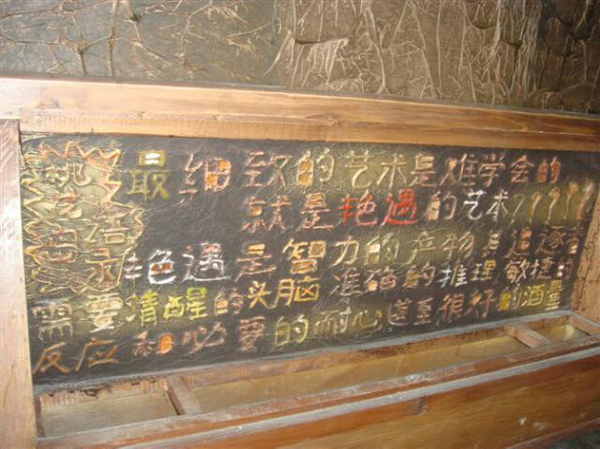 语录
最细致的艺术是难学会的
就是艳遇的艺术??????
艳遇是智力的产物其追逐者
需要清醒的头脑准确的推理敏捷的
反应和必要的耐心甚至很好的酒量